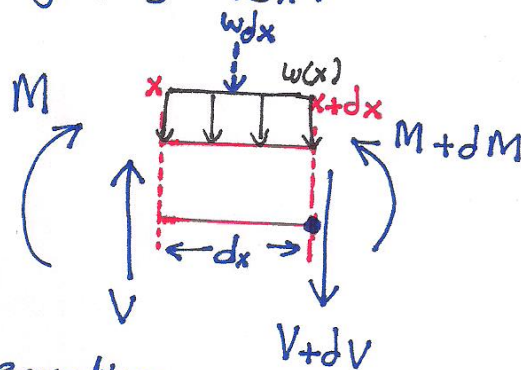 wdx
w(x)
x
x+dx
M
M+dM
dx
V
V+dV